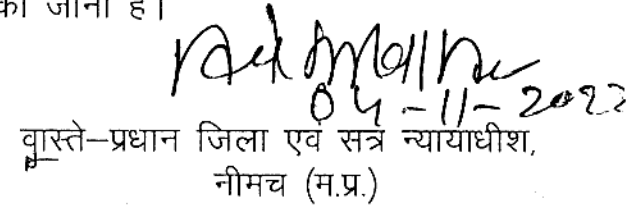 की जाना है।
04-11-2022
वास्ते–प्रधान जिला एवं सत्र न्यायाधीश,
नीमच (म.प्र.)